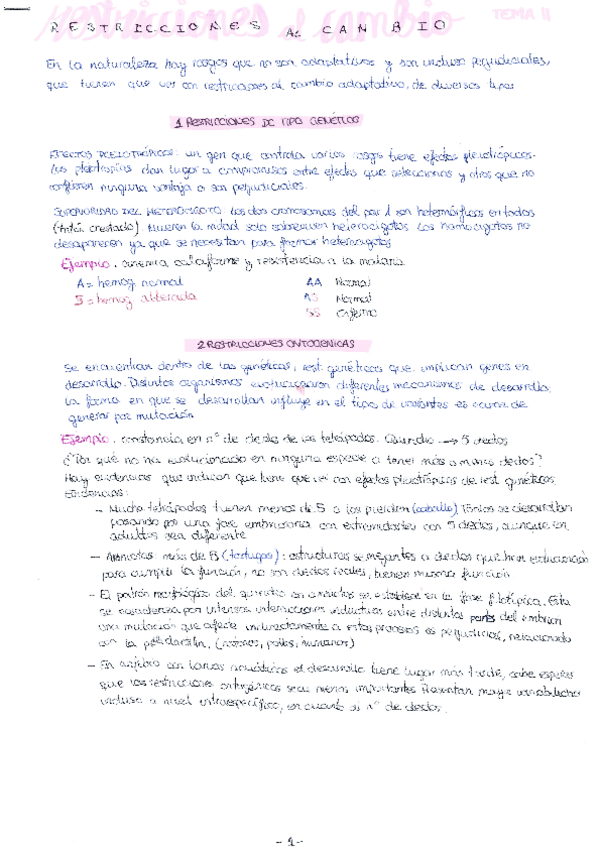 RESTRICCIONES AL CAMBIO
TEMA 11
En la naturaleza hay rasgos que no son adaptativos y son incluso perjudiciales,
que tienen que ver con restricciones al cambio adaptativo, de diversos tipos
1 RESTRICCIONES DE TIPO GENÉTICO
EFECTOS PLEIOTRÓPICOS: un gen que controla varios rasgos tiene efectos pleiotrópicos.
Las pleiotropías dan lugar a compromisos entre efectos que selecciona y otros que no
confieren ninguna ventaja o son perjudiciales.
SUPERIORIDAD DEL HETEROCIGOTO: Los dos cromosomas del par 1 son heteromórficos en todos
(tritón crestado). Mueren la mitad solo sobreviven heterocigotos. Los homocigotos no
desaparecen ya que se necesitan para formar heterocigotos
Ejemplo. anemia calciforme y resistencia a la malaria
A = hemog normal
AA Normal
S = hemog alterada
AS Normal
SS Enfermo
2 RESTRICCIONES ONTOGENICAS
Se encuentran dentro de las genéticas, rest genéticas que implican genes en
desarrollo. Distintos organismos evolucionaron diferentes mecanismos de desarrollo,
la forma en que se desarrollan influye en el tipo de variantes es capaz de
generar por mutación
Ejemplo. constancia en nº de dedos de los tetrápodos. Quiridio → 5 dedos
¿Por qué no ha evolucionado en ninguna especie a tener más o menos dedos?
Hay evidencias que indican que tiene que ver con efectos pleiotrópicos de rest genéticas
Evidencias:
- Muchos tetrápodos tienen menos de 5 o los pierden (caballo). Todos se desarrollan
pasando por una fase embrionaria con extremidades con 5 dedos, aunque en
adultos sea diferente
- Amniotas: más de 5 (tortugas): estructuras semejantes a dedos que han evolucionado
para cumplir la función, no son dedos reales, tienen misma función
- El patrón morfológico del quiridio en amniotas se establece en la fase filotípica. Esta
se caracteriza por intensas interacciones inductivas entre distintas partes del embrión
una mutación que afecte indirectamente a estos procesos es perjudicial, relacionado
con la polidactilia. (ratones, pollos, humanos)
- En anfibios con larvas acuáticas el desarrollo tiene lugar más tarde, cabe esperar
que las restricciones ontogénicas sean menos importantes. Presentan mayor variabilidad
incluso a nivel intraespecífico, en cuanto al nº de dedos.
- 1 -